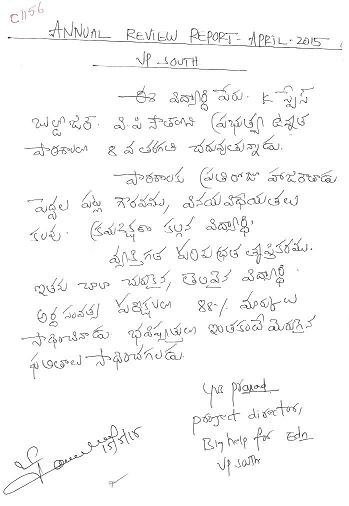 C1156
ANNUAL REVIEW REPORT - APRIL - 2015
VP-SOUTH
ఈ విద్యార్థి పేరు. K
వి పి సౌత్ ప్రభుత్వ ఉన్నత
పాఠశాల 8 వ తరగతి చదువుతున్నాడు.
పాఠశాలకు ప్రతిరోజు హాజరౌతాడు
పెద్దల పట్ల గౌరవము, వినయవిధేయతలు
కలవు. క్రమశిక్షణ కల్గిన విద్యార్థి.
వ్యక్తిగత పరిశుభ్రత తృప్తికరము.
ఇతను చాలా చురుకైన, తెలివైన విద్యార్థి.
అర్ధ సంవత్సర పరీక్షలలో 88% మార్కులు
సాధించినాడు. భవిష్యత్తులో ఇంతకంటే మెరుగైన
ఫలితాలు సాధించగలడు.
prasad
project director,
Big help for Edn
VP South
15/5/15